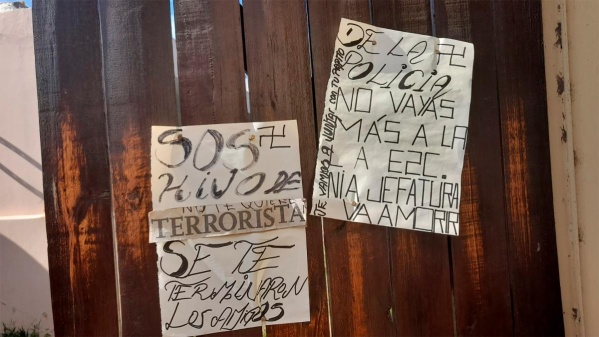 SOS
HIJO DE
NO TE QUIERE
TERRORISTA
SE TE
TERMINARON
LOS AMIGOS
DE LA
POLICIA
NO VAYAS
MÁS A LA
A E2C.
NI A JEFATURA
VA A MORR
TE VAMOS A JUNTAR CON TU PAPITO